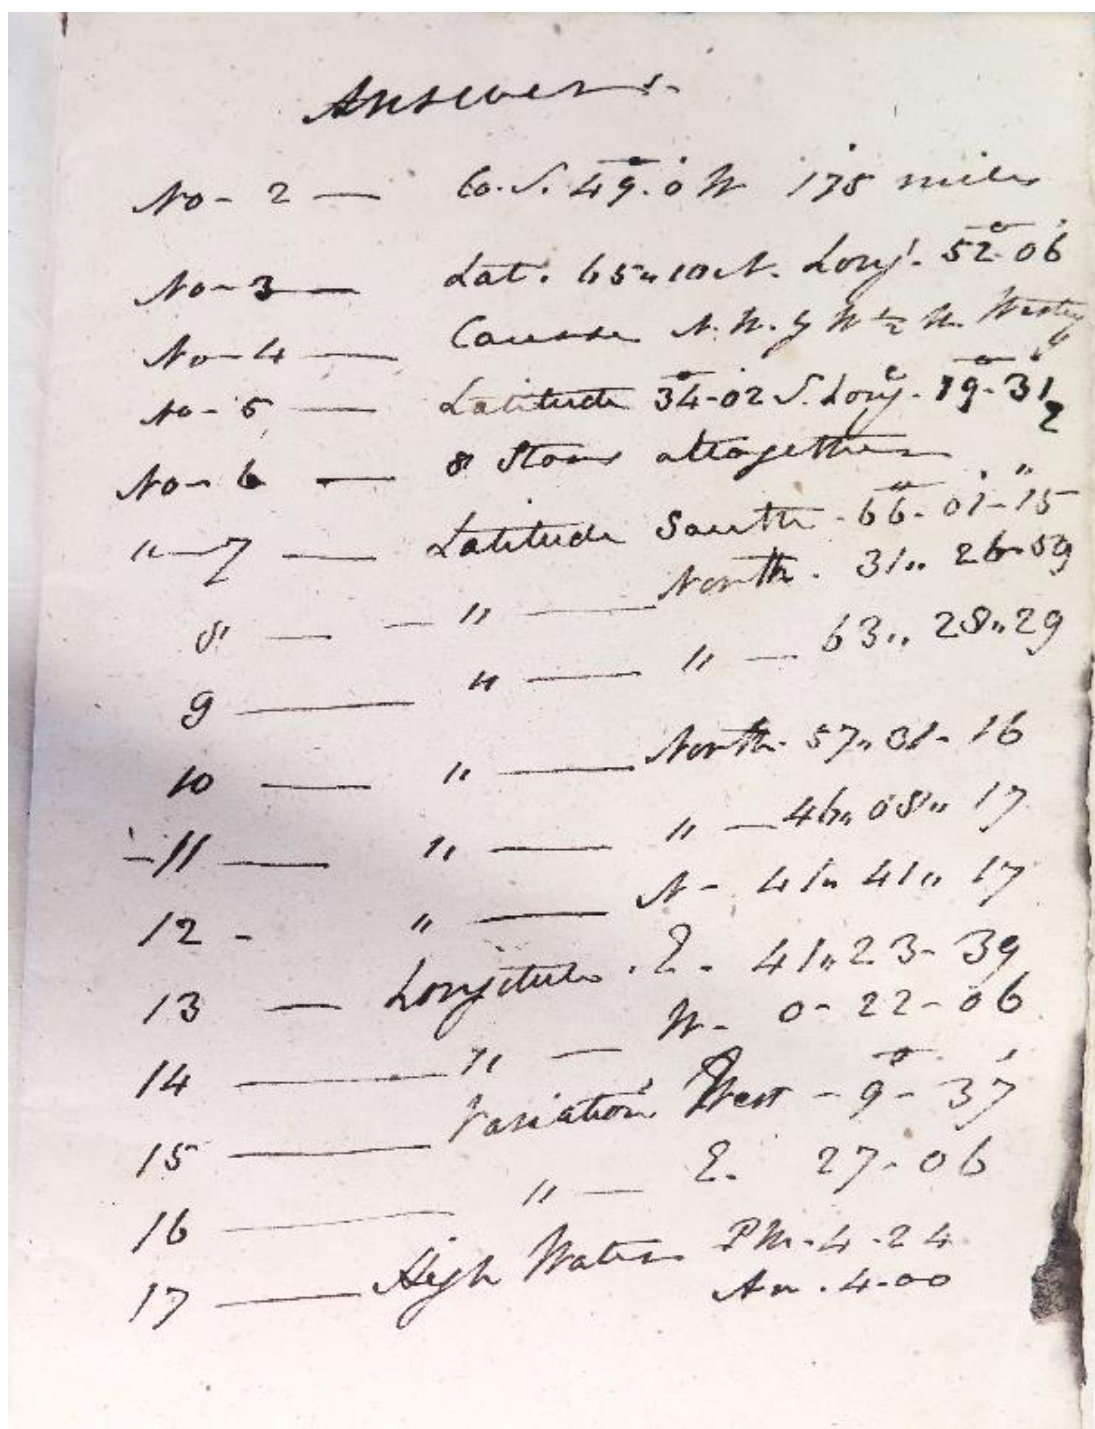 Answers.
No- 2 — Co. S. 49°. 0' W 175 miles
No- 3 — Lat. 65 " 10 N. Long. 52°-06'
No- 4 — Course N. W. by W ½ W. Westy
No- 5 — Latitude 34°-02' S. Long. 19°-31½
No- 6 — 8 Stars altogether
"—7 — Latitude South - 66°- 01'- 15"
8 — — " — North. 31 " 26-59
9 — " — " — 63 " 28 " 29
10 — " — North- 57 " 31- 16
-11 — " — " — 46 " 08 " 17
12 - " — N - 41 " 41 " 17
13 — Longitude. E. 41 " 23- 39
14 — " — W- 0- 22- 06
15 — Variation West - 9°- 37'
16 — " — E. 27- 06
17 — High Water PM- 4-24
Am. 4-00